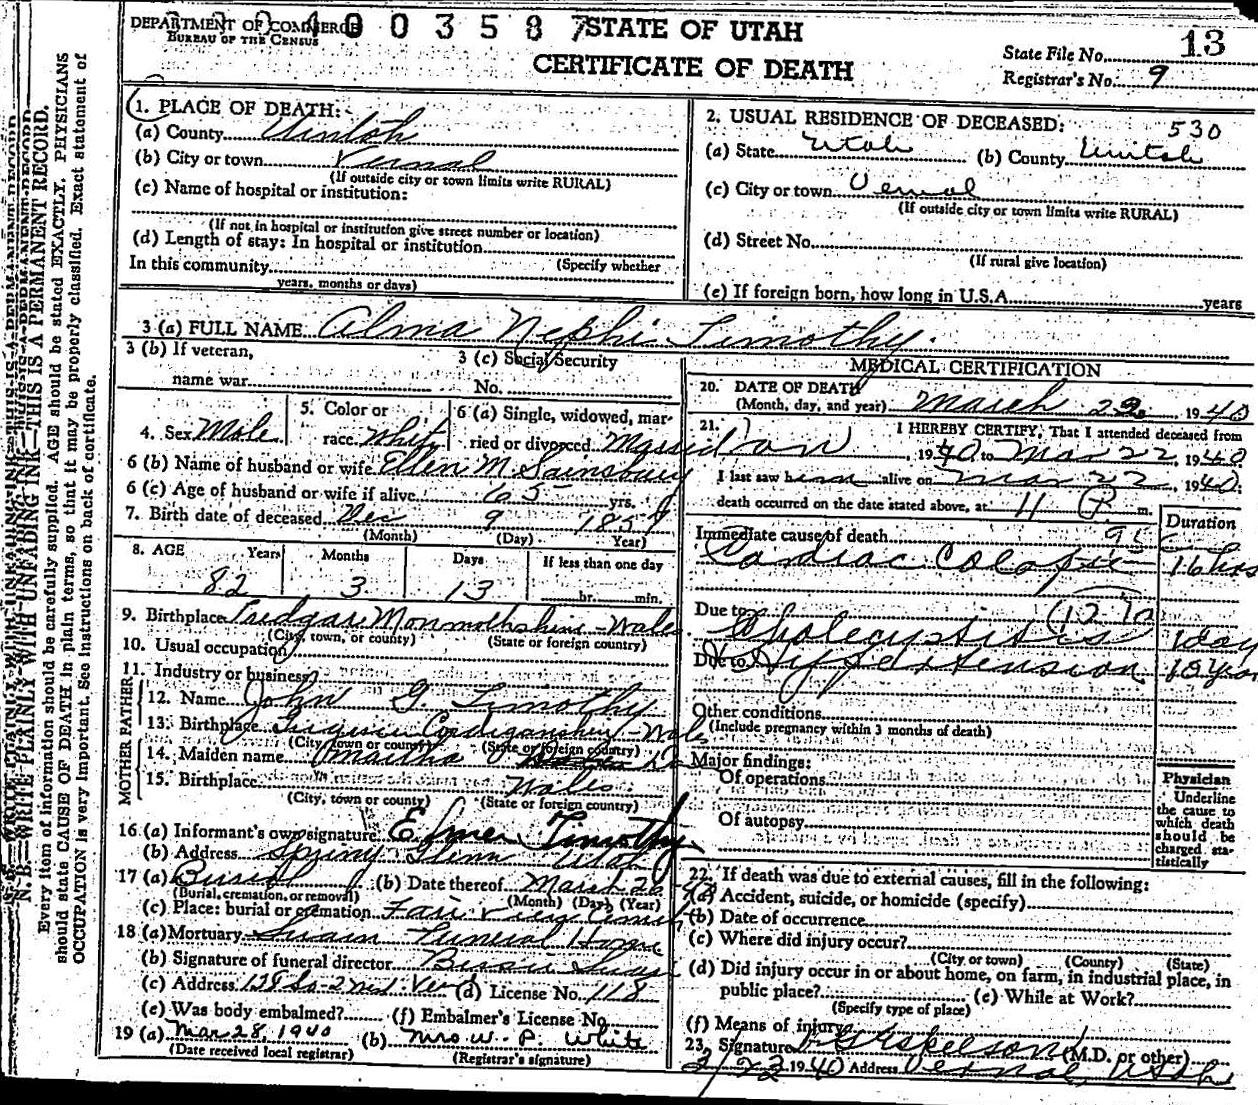 DEPARTMENT OF COMMERCE
BUREAU OF THE CENSUS
4 0 0 3 5 8 7
STATE OF UTAH
CERTIFICATE OF DEATH
13
State File No.
Registrar's No. 9
N. B.—WRITE PLAINLY WITH UNFADING INK—THIS IS A PERMANENT RECORD.
Every item of information should be carefully supplied. AGE should be stated EXACTLY. PHYSICIANS
should state CAUSE OF DEATH in plain terms, so that it may be properly classified. Exact statement of
OCCUPATION is very important. See instructions on back of certificate.
1. PLACE OF DEATH:
(a) County Uintah
(b) City or town Vernal
(If outside city or town limits write RURAL)
(c) Name of hospital or institution:
(If not in hospital or institution give street number or location)
(d) Length of stay: In hospital or institution
In this community (Specify whether
years, months or days)
2. USUAL RESIDENCE OF DECEASED: 530
(a) State Utah (b) County Uintah
(c) City or town Vernal
(If outside city or town limits write RURAL)
(d) Street No.
(If rural give location)
(e) If foreign born, how long in U.S.A. years
3 (a) FULL NAME Alma Nephi Timothy.
3 (b) If veteran,
name war
3 (c) Social Security
No.
4. Sex Male
5. Color or
race White
6 (a) Single, widowed, mar-
ried or divorced Married
6 (b) Name of husband or wife Ellen M Sainsbury
6 (c) Age of husband or wife if alive 65 yrs.
7. Birth date of deceased Dec 9 1857
(Month) (Day) Year)
8. AGE Years Months Days If less than one day
82 3 13 hr. min.
9. Birthplace Tredgar Monmothshire - Wales
(City, town, or county) (State or foreign country)
10. Usual occupation
11. Industry or business
FATHER
12. Name John G. Timothy
13. Birthplace Cardiganshire - Wales
(City, town or county) (State or foreign country)
MOTHER
14. Maiden name Martha
15. Birthplace Wales
(City, town or county) (State or foreign country)
16. (a) Informant's own signature Elmer Timothy
(b) Address Spring Glenn Utah
17 (a) Burial (b) Date thereof March 26 - 40
(Burial, cremation, or removal) (Month) (Day) (Year)
(c) Place: burial or cremation Fair View Cemetery
18 (a) Mortuary Swain Funeral Home
(b) Signature of funeral director Swain
(c) Address 128 So-2nd. Ver (d) License No. 118
(e) Was body embalmed? (f) Embalmer's License No.
19 (a) Mar 28, 1940 (b) Mrs W. P. White
(Date received local registrar) (Registrar's signature)
MEDICAL CERTIFICATION
20. DATE OF DEATH
(Month, day, and year) March 22 1940
21. I HEREBY CERTIFY, That I attended deceased from
Jan , 1940 to Mar 22, 1940
I last saw him alive on Mar 22, 1940.
death occurred on the date stated above, at 11 P m.
Duration
Immediate cause of death
Cardiac Colapse 16 hrs
Due to
Cholecystitis 1 day
Due to Hypertension 10 yrs
Other conditions
(Include pregnancy within 3 months of death)
Major findings:
Of operations
Of autopsy
Physician
Underline
the cause to
which death
should be
charged sta-
tistically
22. If death was due to external causes, fill in the following:
(a) Accident, suicide, or homicide (specify)
(b) Date of occurrence
(c) Where did injury occur?
(City or town) (County) (State)
(d) Did injury occur in or about home, on farm, in industrial place, in
public place? (e) While at Work?
(Specify type of place)
(f) Means of injury
23. Signature (M.D. or other)
3/23 1940 Address Vernal, Utah